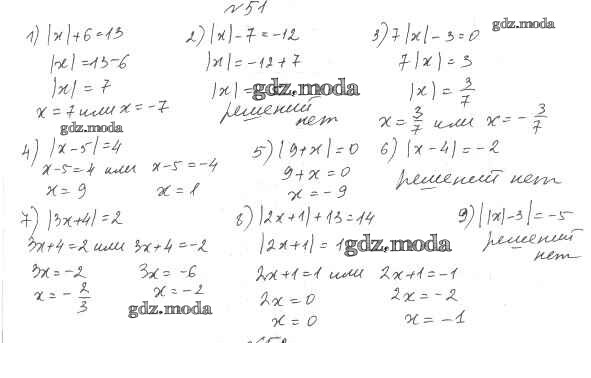 №51
1) |x|+6=13
|x|=13-6
|x|=7
x=7 или x=-7
2) |x|-7=-12
|x|=-12+7
|x|=
решений
нет
3) 7|x|-3=0
7|x|=3
|x|=3/7
x=3/7 или x=-3/7
4) |x-5|=4
x-5=4 или x-5=-4
x=9 x=1
5) |9+x|=0
9+x=0
x=-9
6) |x-4|=-2
решений нет
7) |3x+4|=2
3x+4=2 или 3x+4=-2
3x=-2 3x=-6
x=-2/3 x=-2
8) |2x+1|+13=14
|2x+1|=1
2x+1=1 или 2x+1=-1
2x=0 2x=-2
x=0 x=-1
9) ||x|-3|=-5
решений
нет
gdz.moda
gdz.moda
gdz.moda
gdz.moda
gdz.moda